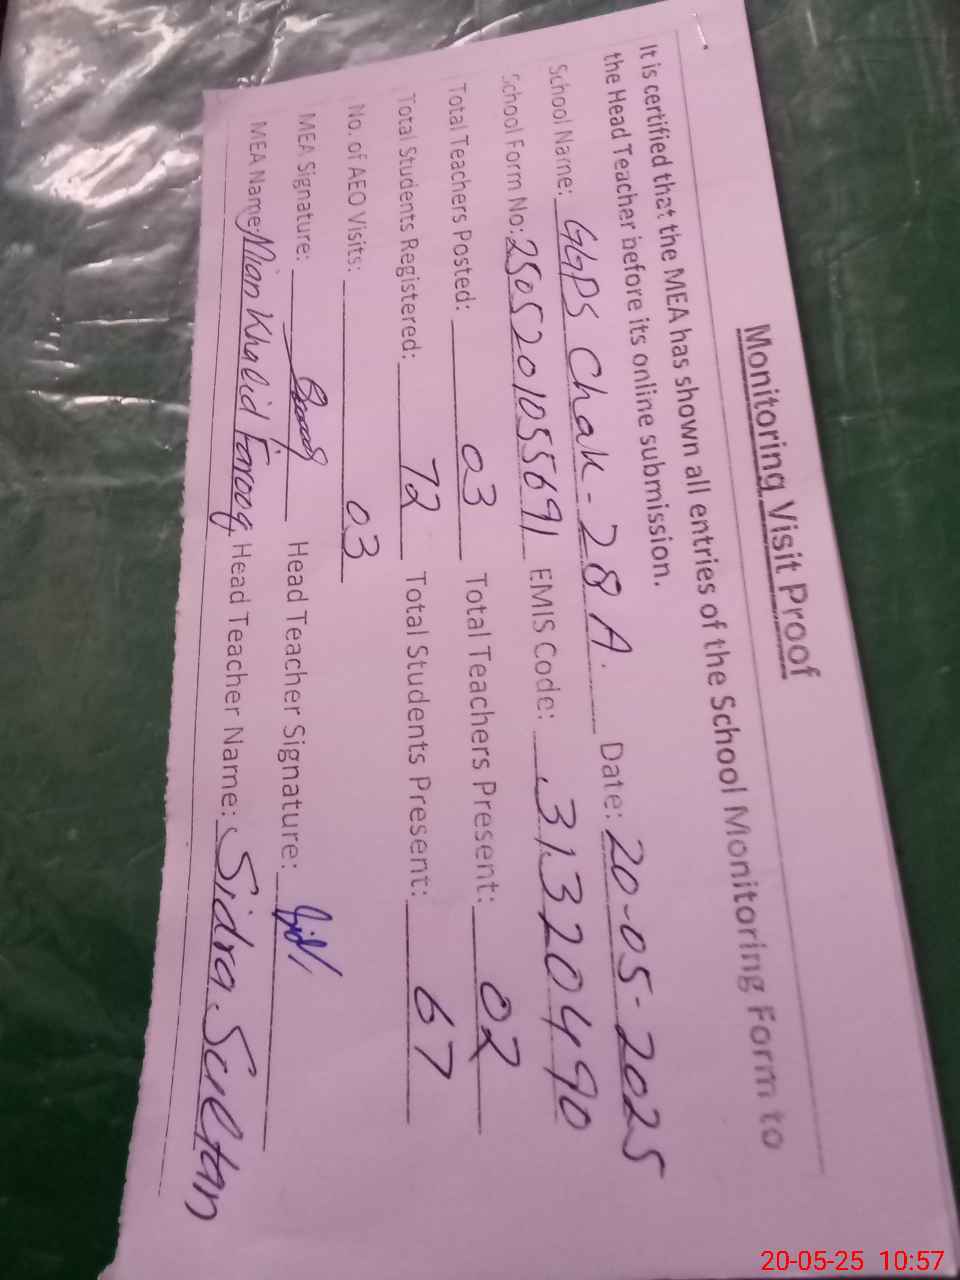 Monitoring Visit Proof
It is certified that the MEA has shown all entries of the School Monitoring Form to
the Head Teacher before its online submission.
School Name: GGPS Chak-28 A. Date: 20-05-2025
School Form No: 2505201055691 EMIS Code: 31320490
Total Teachers Posted: 03 Total Teachers Present: 02
Total Students Registered: 72 Total Students Present: 67
No. of AEO Visits: 03
MEA Signature: Head Teacher Signature:
MEA Name: Mian Khalid Farooq Head Teacher Name: Sidra Sultan
20-05-25 10:57